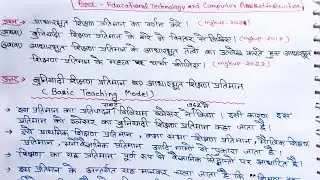 Paper - Educational Technology and Computer Assisted Instruction
प्रश्न) आधारभूत शिक्षण प्रतिमान का वर्णन करें। (mgkvp-2021)
बुनियादी शिक्षण प्रतिमान के बारे में विस्तार से लिखिए।
शिक्षण प्रतिमान के आधारभूत तत्वों का उल्लेख करते हुए आधारभूत
शिक्षण प्रतिमान के महत्व पर चर्चा कीजिए। (mgkvp-2022)
उत्तर- बुनियादी शिक्षण प्रतिमान या आधारभूत शिक्षण प्रतिमान
(Basic Teaching Model)
→ इस प्रतिमान का प्रतिपादन विलियम ग्लेसर ने किया। इसी कारण इस
प्रतिमान को ग्लेसर का बुनियादी शिक्षण प्रतिमान कहा जाता है।
→ इसे प्राथमिक शिक्षण प्रतिमान, कक्षा सभा शिक्षण प्रतिमान, मौलिक शिक्षण
प्रतिमान, मनोवैज्ञानिक प्रतिमान आदि नामों से पुकारा जाता है।
→ शिक्षण का यह प्रतिमान पूर्ण रूप से मनोवैज्ञानिक सिद्धान्तों पर आधारित है।
→ इस प्रतिमान के अन्तर्गत यह मानकर चला जाता है कि " शिक्षण वह